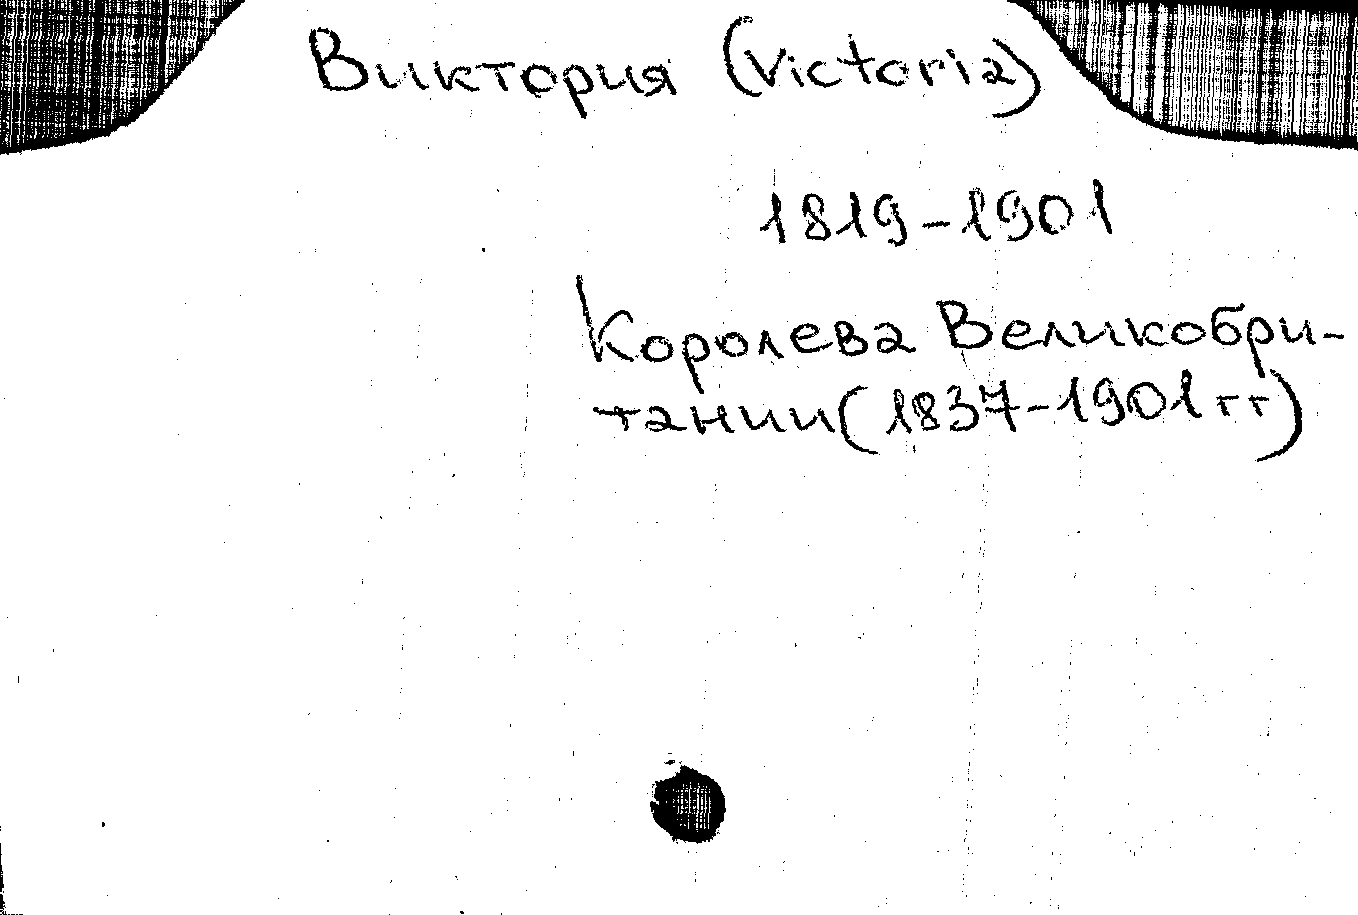 Виктория (Victoria)
1819-1901
Королева Великобри-
тании (1837-1901 гг)